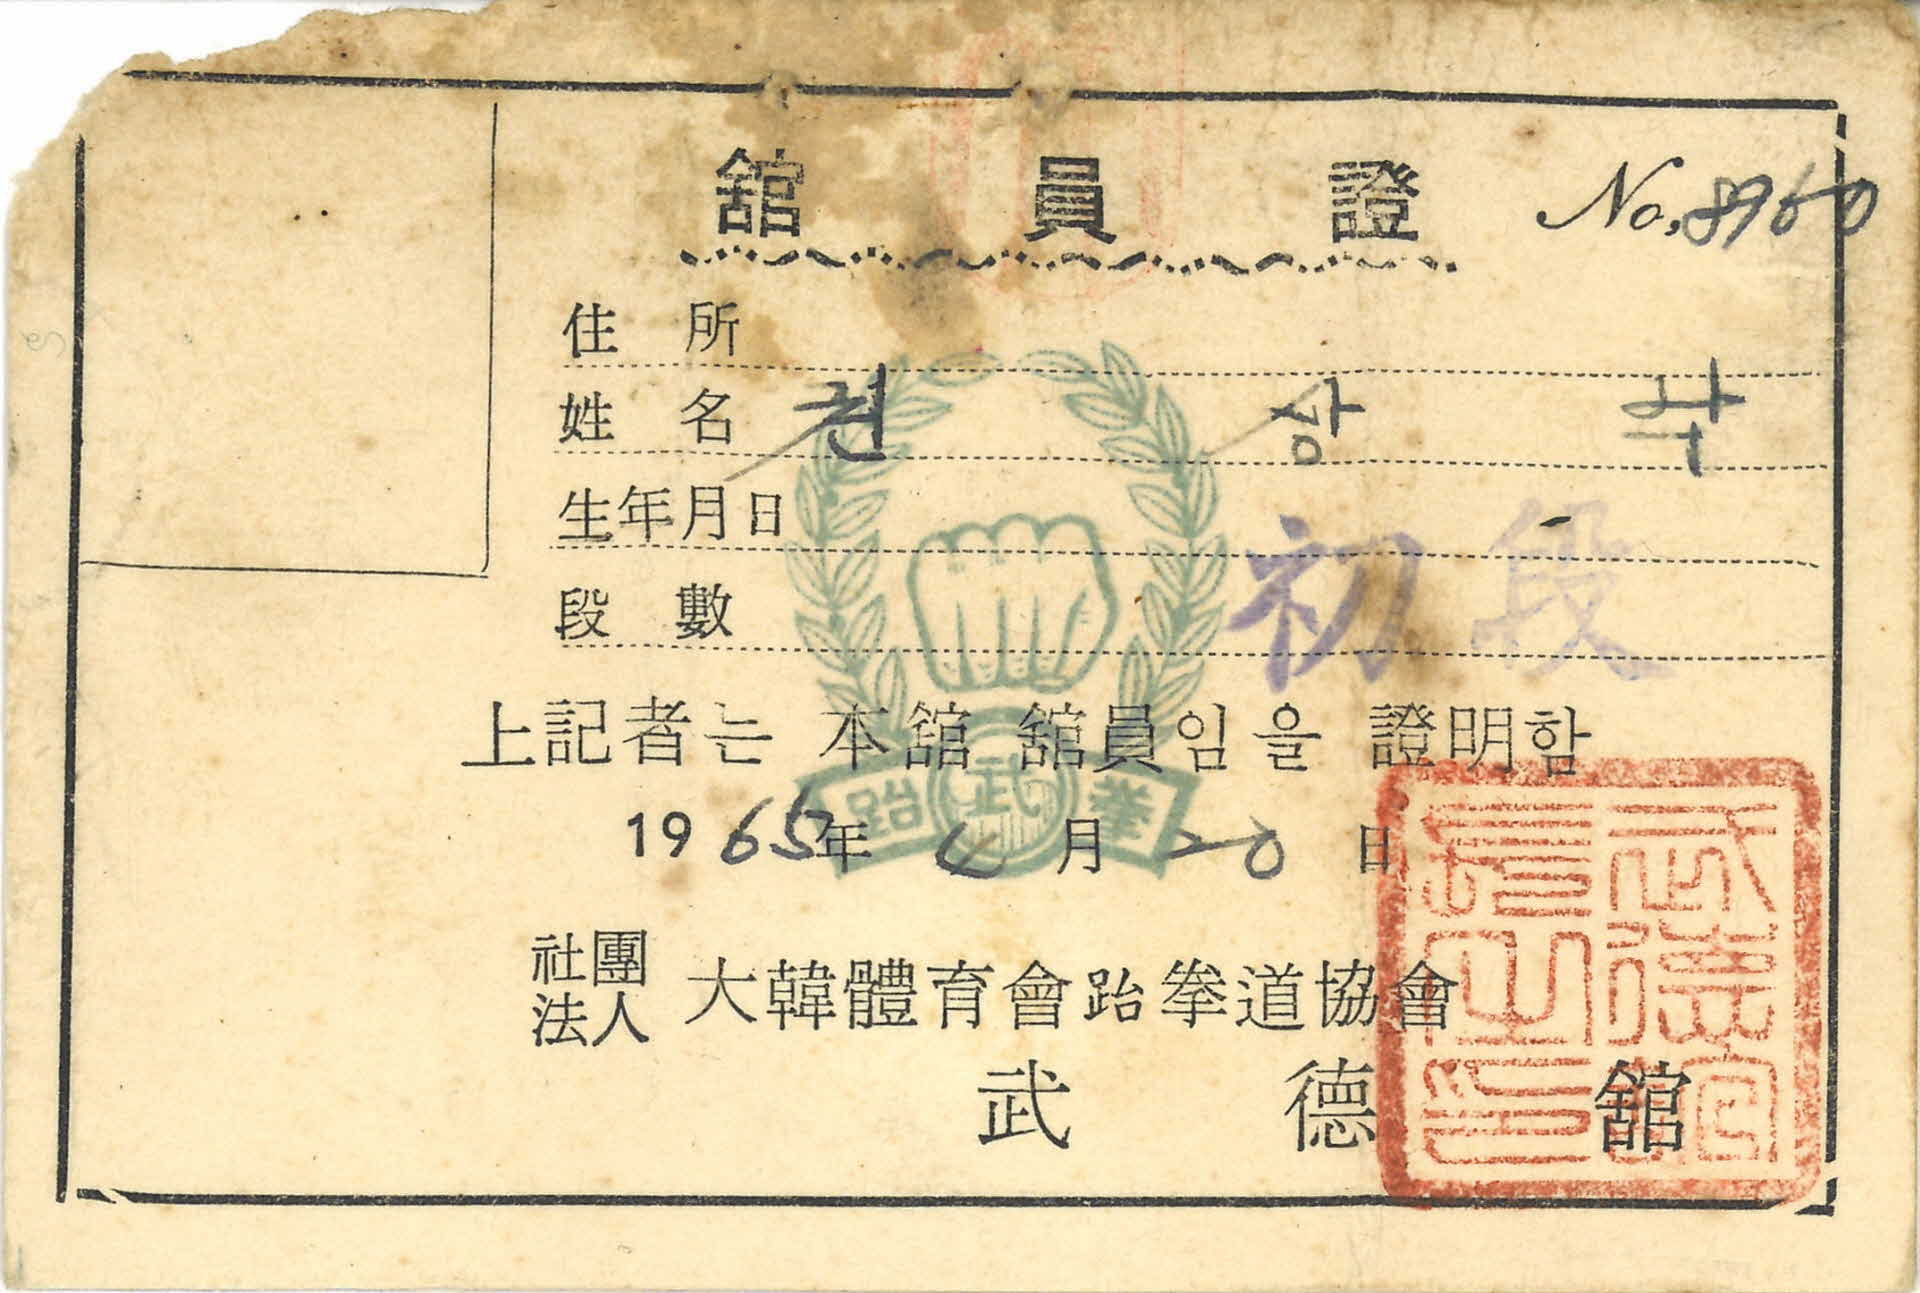 舘 員 證 No. 8960
住 所
姓 名 권 상 부
生年月日
段 數 初段
上記者는 本舘 舘員임을 證明함
跆 武 拳
1965年 4月 20日
社團法人 大韓體育會跆拳道協會
武 德 舘
武德舘長之印